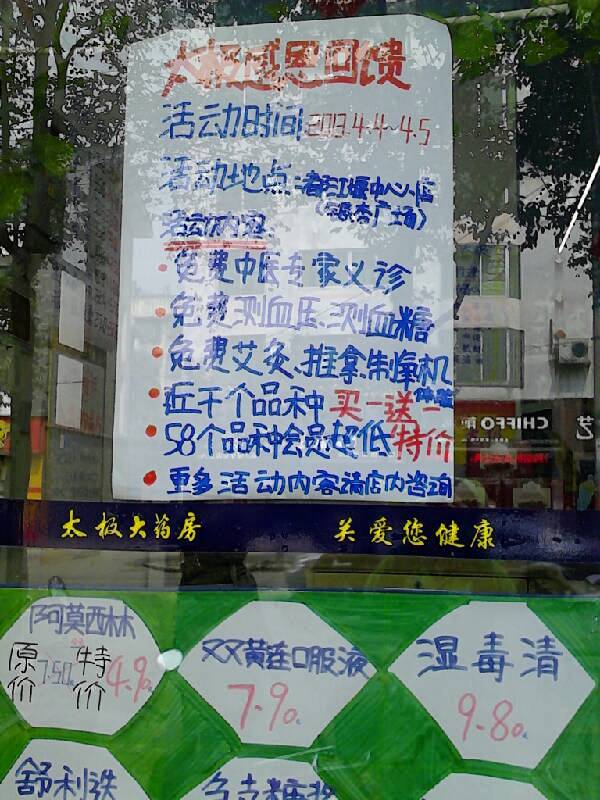 太极感恩回馈
活动时间 2013.4.4~4.5
活动地点:春江堰中心小区
(银杏广场)
活动内容
免费中医专家义诊
免费测血压、测血糖
免费艾灸、推拿、制氧机
体验
近千个品种 买一送一
58个品种会员超低特价
更多活动内容请店内咨询
太极大药房 关爱您健康
CHIFFO 前
艺
阿莫西林
原价 7.50 特价 4.90
双黄连口服液
7.90
湿毒清
9.80
舒利迭